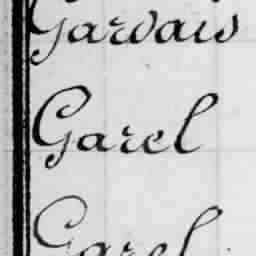 Garvais
Garel
Garel